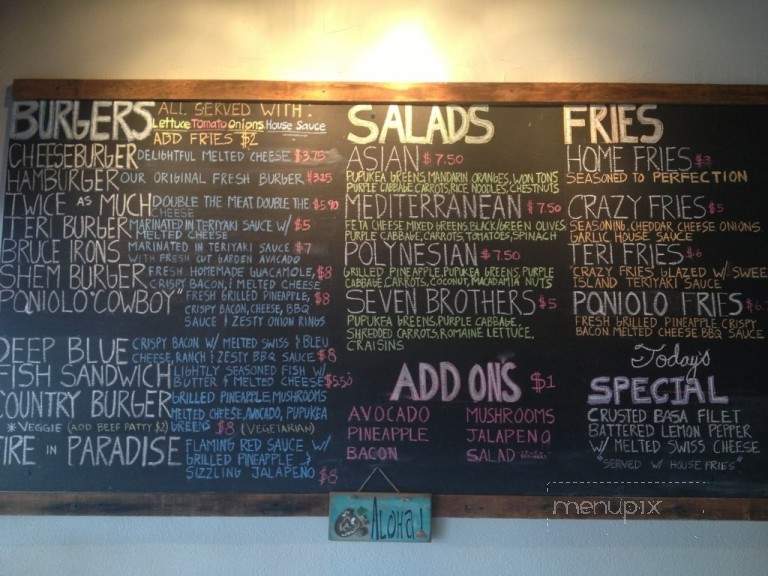 BURGERS
ALL SERVED WITH:
Lettuce Tomato Onions House Sauce
ADD FRIES $2
CHEESEBURGER DELIGHTFUL MELTED CHEESE $3.75
HAMBURGER OUR ORIGINAL FRESH BURGER
TWICE AS MUCH DOUBLE THE MEAT DOUBLE THE
CHEESE
TERI BURGER MARINATED IN TERIYAKI SAUCE W/ $5
MELTED CHEESE
BRUCE IRONS MARINATED IN TERIYAKI SAUCE $7
WITH FRESH CUT GARDEN AVOCADO
SHEM BURGER FRESH HOMEMADE GUACAMOLE, $8
CRISPY BACON, & MELTED CHEESE
PONIOLO "COWBOY" FRESH GRILLED PINEAPPLE, $8
CRISPY BACON, CHEESE, BBQ
SAUCE & ZESTY ONION RINGS
DEEP BLUE CRISPY BACON W/ MELTED SWISS & BLEU
CHEESE, RANCH & ZESTY BBQ SAUCE $8
FISH SANDWICH LIGHTLY SEASONED FISH W/
BUTTER & MELTED CHEESE $5.50
COUNTRY BURGER GRILLED PINEAPPLE, MUSHROOMS
MELTED CHEESE, AVOCADO, PUPUKEA
*VEGGIE (ADD BEEF PATTY $2) GREENS $8 (VEGETARIAN)
FIRE IN PARADISE FLAMING RED SAUCE W/
GRILLED PINEAPPLE &
SIZZLING JALAPENO $8
SALADS
ASIAN $7.50
PUPUKEA GREENS, MANDARIN ORANGES, WON TONS
PURPLE CABBAGE, CARROTS, RICE NOODLES, CHESTNUTS
MEDITERRANEAN $7.50
FETA CHEESE MIXED GREENS, BLACK/GREEN OLIVES,
PURPLE CABBAGE, CARROTS, TOMATOES, SPINACH
POLYNESIAN $7.50
GRILLED PINEAPPLE, PUPUKEA GREENS, PURPLE
CABBAGE, CARROTS, COCONUT, MACADAMIA NUTS
SEVEN BROTHERS $5
PUPUKEA GREENS, PURPLE CABBAGE,
SHREDDED CARROTS, ROMAINE LETTUCE,
CRAISINS
ADD ON'S $1
AVOCADO MUSHROOMS
PINEAPPLE JALAPENO
BACON SALAD
FRIES
HOME FRIES $3
SEASONED TO PERFECTION
CRAZY FRIES $5
SEASONING, CHEDDAR, CHEESE ONIONS
GARLIC HOUSE SAUCE
TERI FRIES $6
"CRAZY FRIES, GLAZED W/ SWEE
ISLAND TERIYAKI SAUCE
PONIOLO FRIES
FRESH GRILLED PINEAPPLE CRISPY
BACON MELTED CHEESE BBQ SAUCE
Today's
SPECIAL
CRUSTED BASA FILET
BATTERED LEMON PEPPER
W/ MELTED SWISS CHEESE
"SERVED W/ HOUSE FRIES"
ALOHA!
menupix